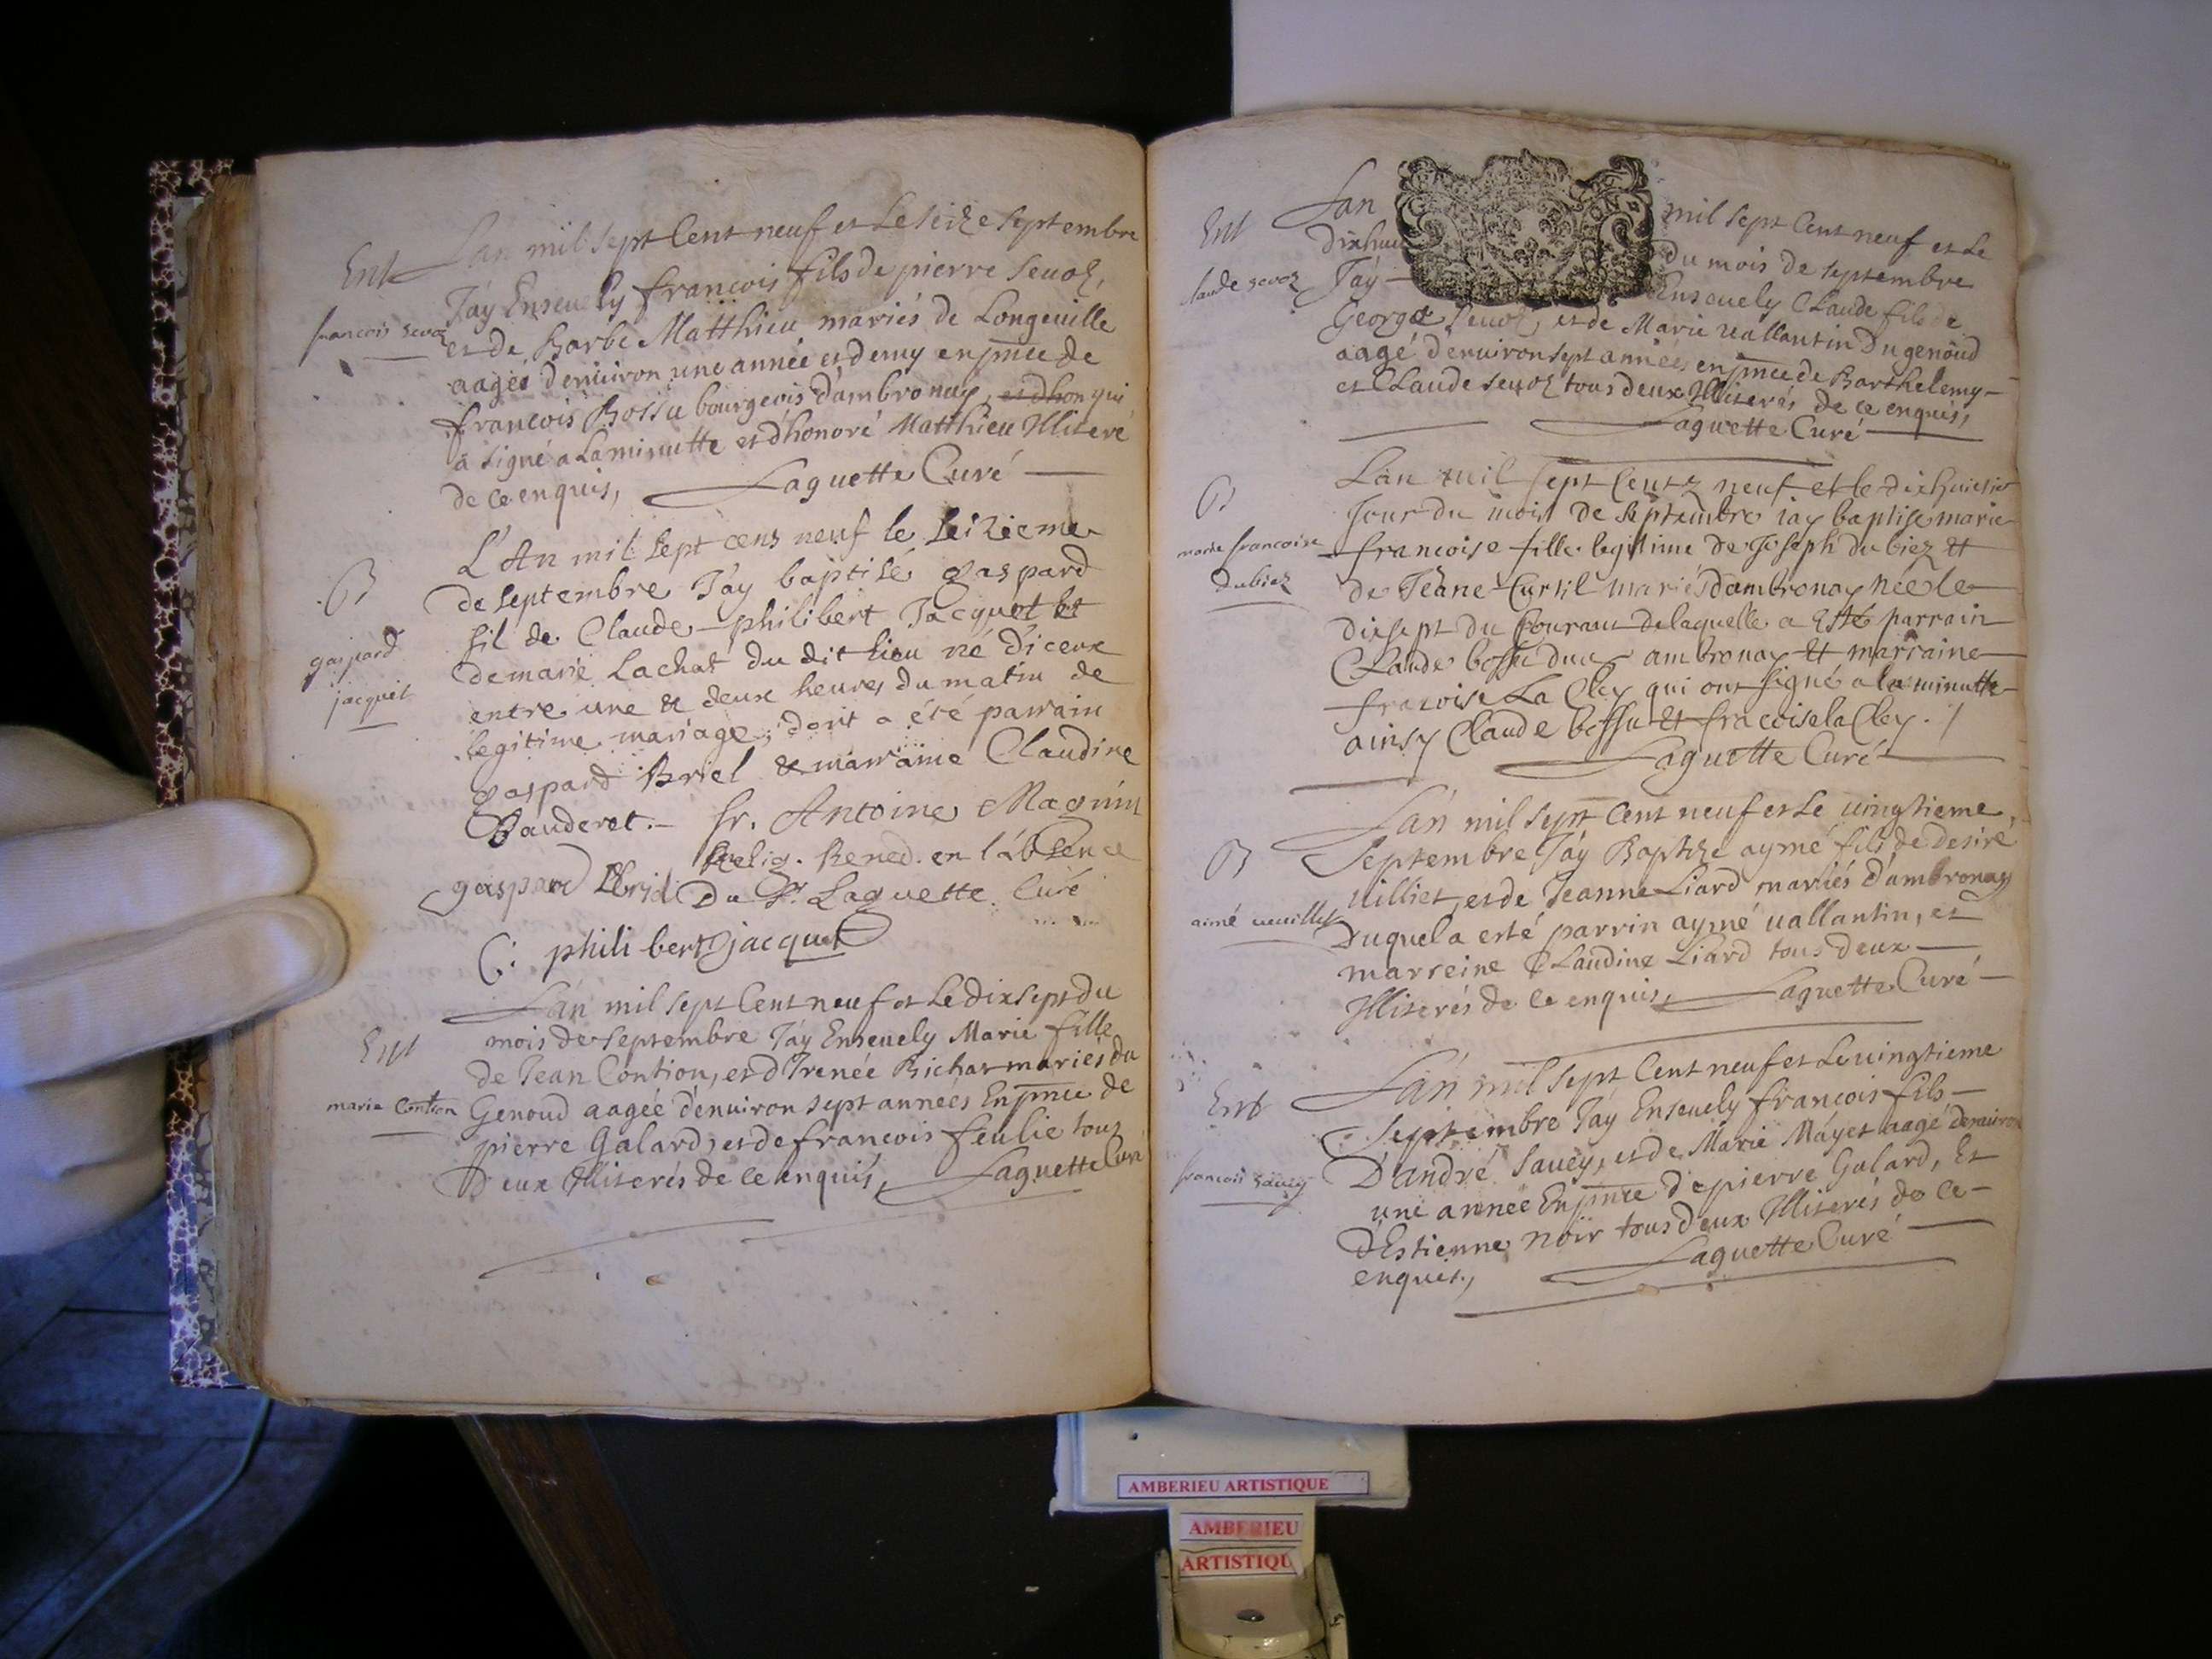 Ent
francois sevoz
Lan mil sept Cent neuf et Le seize septembre
J'ay Enseuely francois fils de pierre Seuoz,
et de Barbe Matthieu mariés de Longeuille
aagée d'enuiron une année et demy en pnce de
francois Bossu bourgeois d'ambronay, et dhon qui
a signé a La minutte et d'honoré Matthieu Illiteré
de ce enquis, Laguette Curé
B
gaspard
jacquet
L'An mil sept cens neuf le seizieme
de septembre J'ay baptisé gaspard
fil de Claude-philibert Jacquet et
de marie Lachat du dit lieu né d'iceux
entre une & deux heures du matin de
legitime mariage; dont a été parrain
gaspard Briel & marraine Claudine
Bauderet. fr. Antoine Magnin
Relig. Bened. en l'absence
gaspard Briel Du Sr. Laguette Curé
C: philibert jacquet
Ent
marie Contion
Lan mil sept Cent neuf et Le dix sept du
mois de septembre J'ay Enseuely Marie fille
de Jean Contion, et d'Irenée Richar mariés du
Genoud aagée d'enuiron sept années En pnce de
pierre Galard, et de francois feulie tous
Deux Illiterés de ce enquis, Laguette Curé
Ent
Claude sevoz
Lan mil sept Cent neuf et Le
dixhui du mois de septembre
J'ay Enseuely Claude fils de
George Seuoz, et de Marie uallantin du genoud
aagé d'enuiron sept années en pnce de Barthelemy
et Claude seuoz tous deux Illiterés de ce enquis,
Laguette Curé
B
marie francoise
dubiez
Lan mil sept Centz neuf et le dixhuictie
Jour du mois de septembre iay baptisé marie
francoise fille legitime de Joseph du biez et
de Jeane Curtil mariés d'ambronay née le
dix sept du Courant de laquelle a Esté parrain
Claude bossu du ambronay et marraine
fracoise La Cley qui ont signé a la minutte
ainsy Claude bossu et fracoise la Cley. /
Laguette Curé
B
aimé veuillet
Lan mil sept Cent neuf et Le uingtieme
Septembre J'ay Baptize aymé fils de desiré
uilliet, et de Jeanne Liard mariés d'ambronay
Duquel a esté parrin aymé uallantin, et
marreine Claudine Liard tous deux
Illiterés de ce enquis, Laguette Curé
Ent
francois sauey
Lan mil sept Cent neuf et Le uingtieme
Septembre J'ay Enseuely francois fils
D'andré Sauey, et de Marie Máyet aagé denuiron
une année En pnce de pierre Galard, Et
d'Estienne noir tous deux Illiterés de ce
enquis, Laguette Curé
AMBERIEU ARTISTIQUE
AMBERIEU
ARTISTIQU